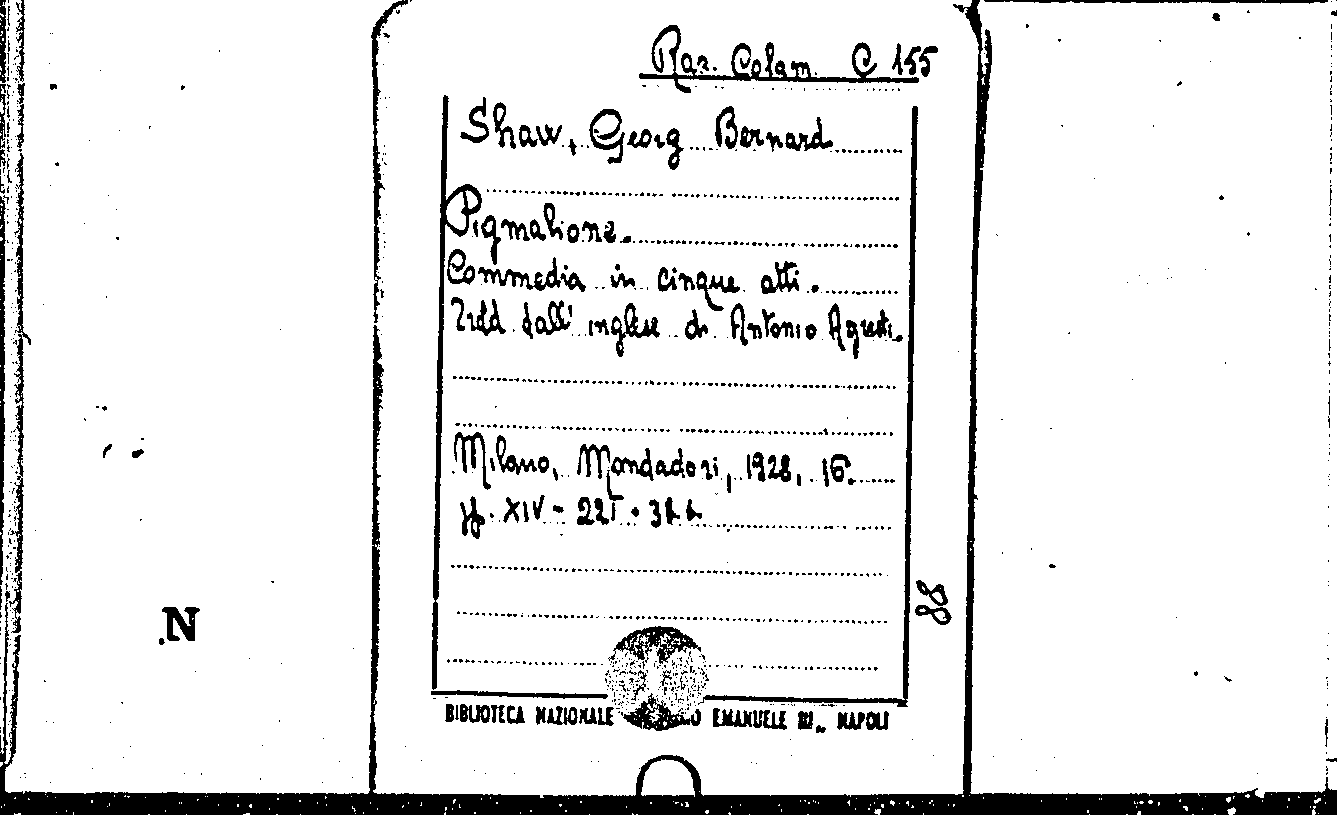 Rac. Colam. C 155
Shaw, Georg Bernard
Pigmalione.
Commedia in cinque atti.
dall' inglese di Antonio Agresti.
Milano, Mondadori, 1928, 16.
pp. XIV - 221 •
88
N
BIBLIOTECA NAZIONALE EMANUELE III„ NAPOLI